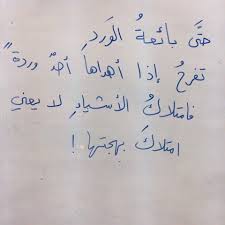 حتَّى بائعةُ الوَردِ
تفرحُ إذا أهداها أحدٌ وردةً
فامتلاكُ الأشياءِ لا يعني
امتلاكَ بهجتها !